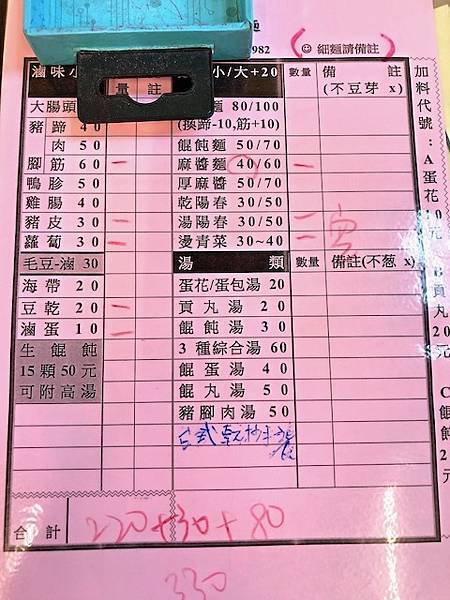 麵
982
(☺ 細麵請備註)
滷味小
量 註
小/大+20
數量
備 註
(不豆芽 x)
大腸頭
豬蹄 40
肉 50
腳筋 60 一
鴨胗 50
雞腸 40
豬皮 30 一
蘿蔔 30 一
毛豆-滷 30
海帶 20
豆乾 20 一
滷蛋 10 一
生餛飩
15顆50元
可附高湯
麵 80/100
(換蹄-10,筋+10)
餛飩麵 50/70
麻醬麵 40/60 一
厚麻醬 50/70
乾陽春 30/50
湯陽春 30/50 一
燙青菜 30~40 一
湯 類
數量
備註(不葱 x)
蛋花/蛋包湯 20
貢丸湯 20
餛飩湯 30
3種綜合湯 60
餛蛋湯 40
餛丸湯 50
豬腳肉湯 50
合計
220+30+80
330
加料代號:A蛋花10元
B貢丸20
C餛飩2
元